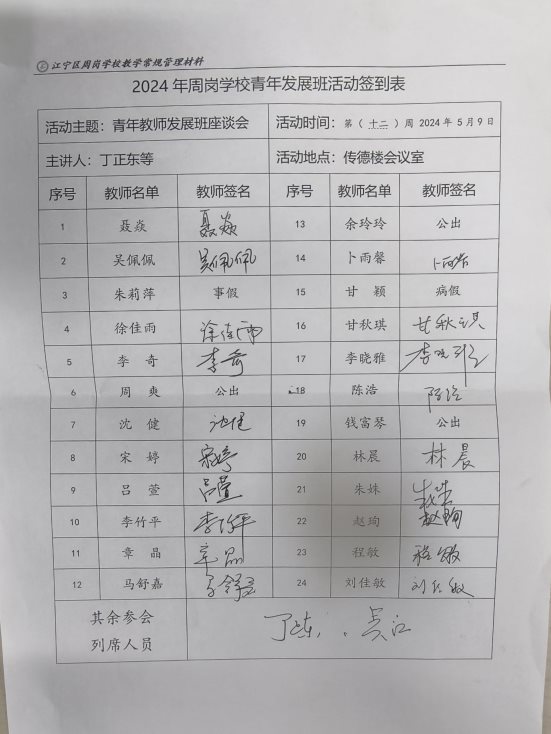 江宁区周岗学校教学常规管理材料
2024年周岗学校青年发展班活动签到表
活动主题：青年教师发展班座谈会 活动时间：第（十二）周 2024年5月9日
主讲人：丁正东等 活动地点：传德楼会议室
序号 教师名单 教师签名 序号 教师名单 教师签名
1 聂焱 聂焱 13 余玲玲 公出
2 吴佩佩 吴佩佩 14 卜雨馨
3 朱莉萍 事假 15 甘 颖 病假
4 徐佳雨 徐佳雨 16 甘秋琪 甘秋琪
5 李 奇 李奇 17 李晓雅 李晓雅
6 周 爽 公出 18 陈浩 陈浩
7 沈 健 沈健 19 钱富琴 公出
8 宋婷 宋婷 20 林晨 林晨
9 吕 萱 吕萱 21 朱姝 朱姝
10 李竹平 李竹平 22 赵珣 赵珣
11 章 晶 章晶 23 程敏 程敏
12 马舒嘉 马舒嘉 24 刘佳敏 刘佳敏
其余参会
列席人员 吴江